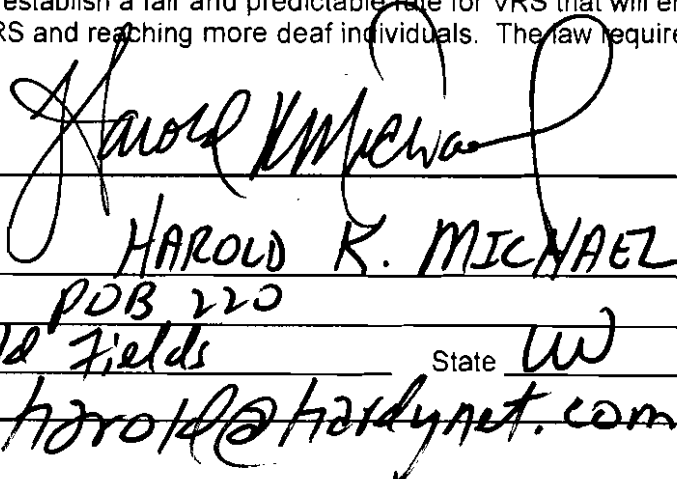 establish a fair and predictable rule for VRS that will
RS and reaching more deaf individuals. The law require
Harold K Michael
HAROLD K. MICHAEL
POB 220
ld Fields State WV
harold@hardynet.com